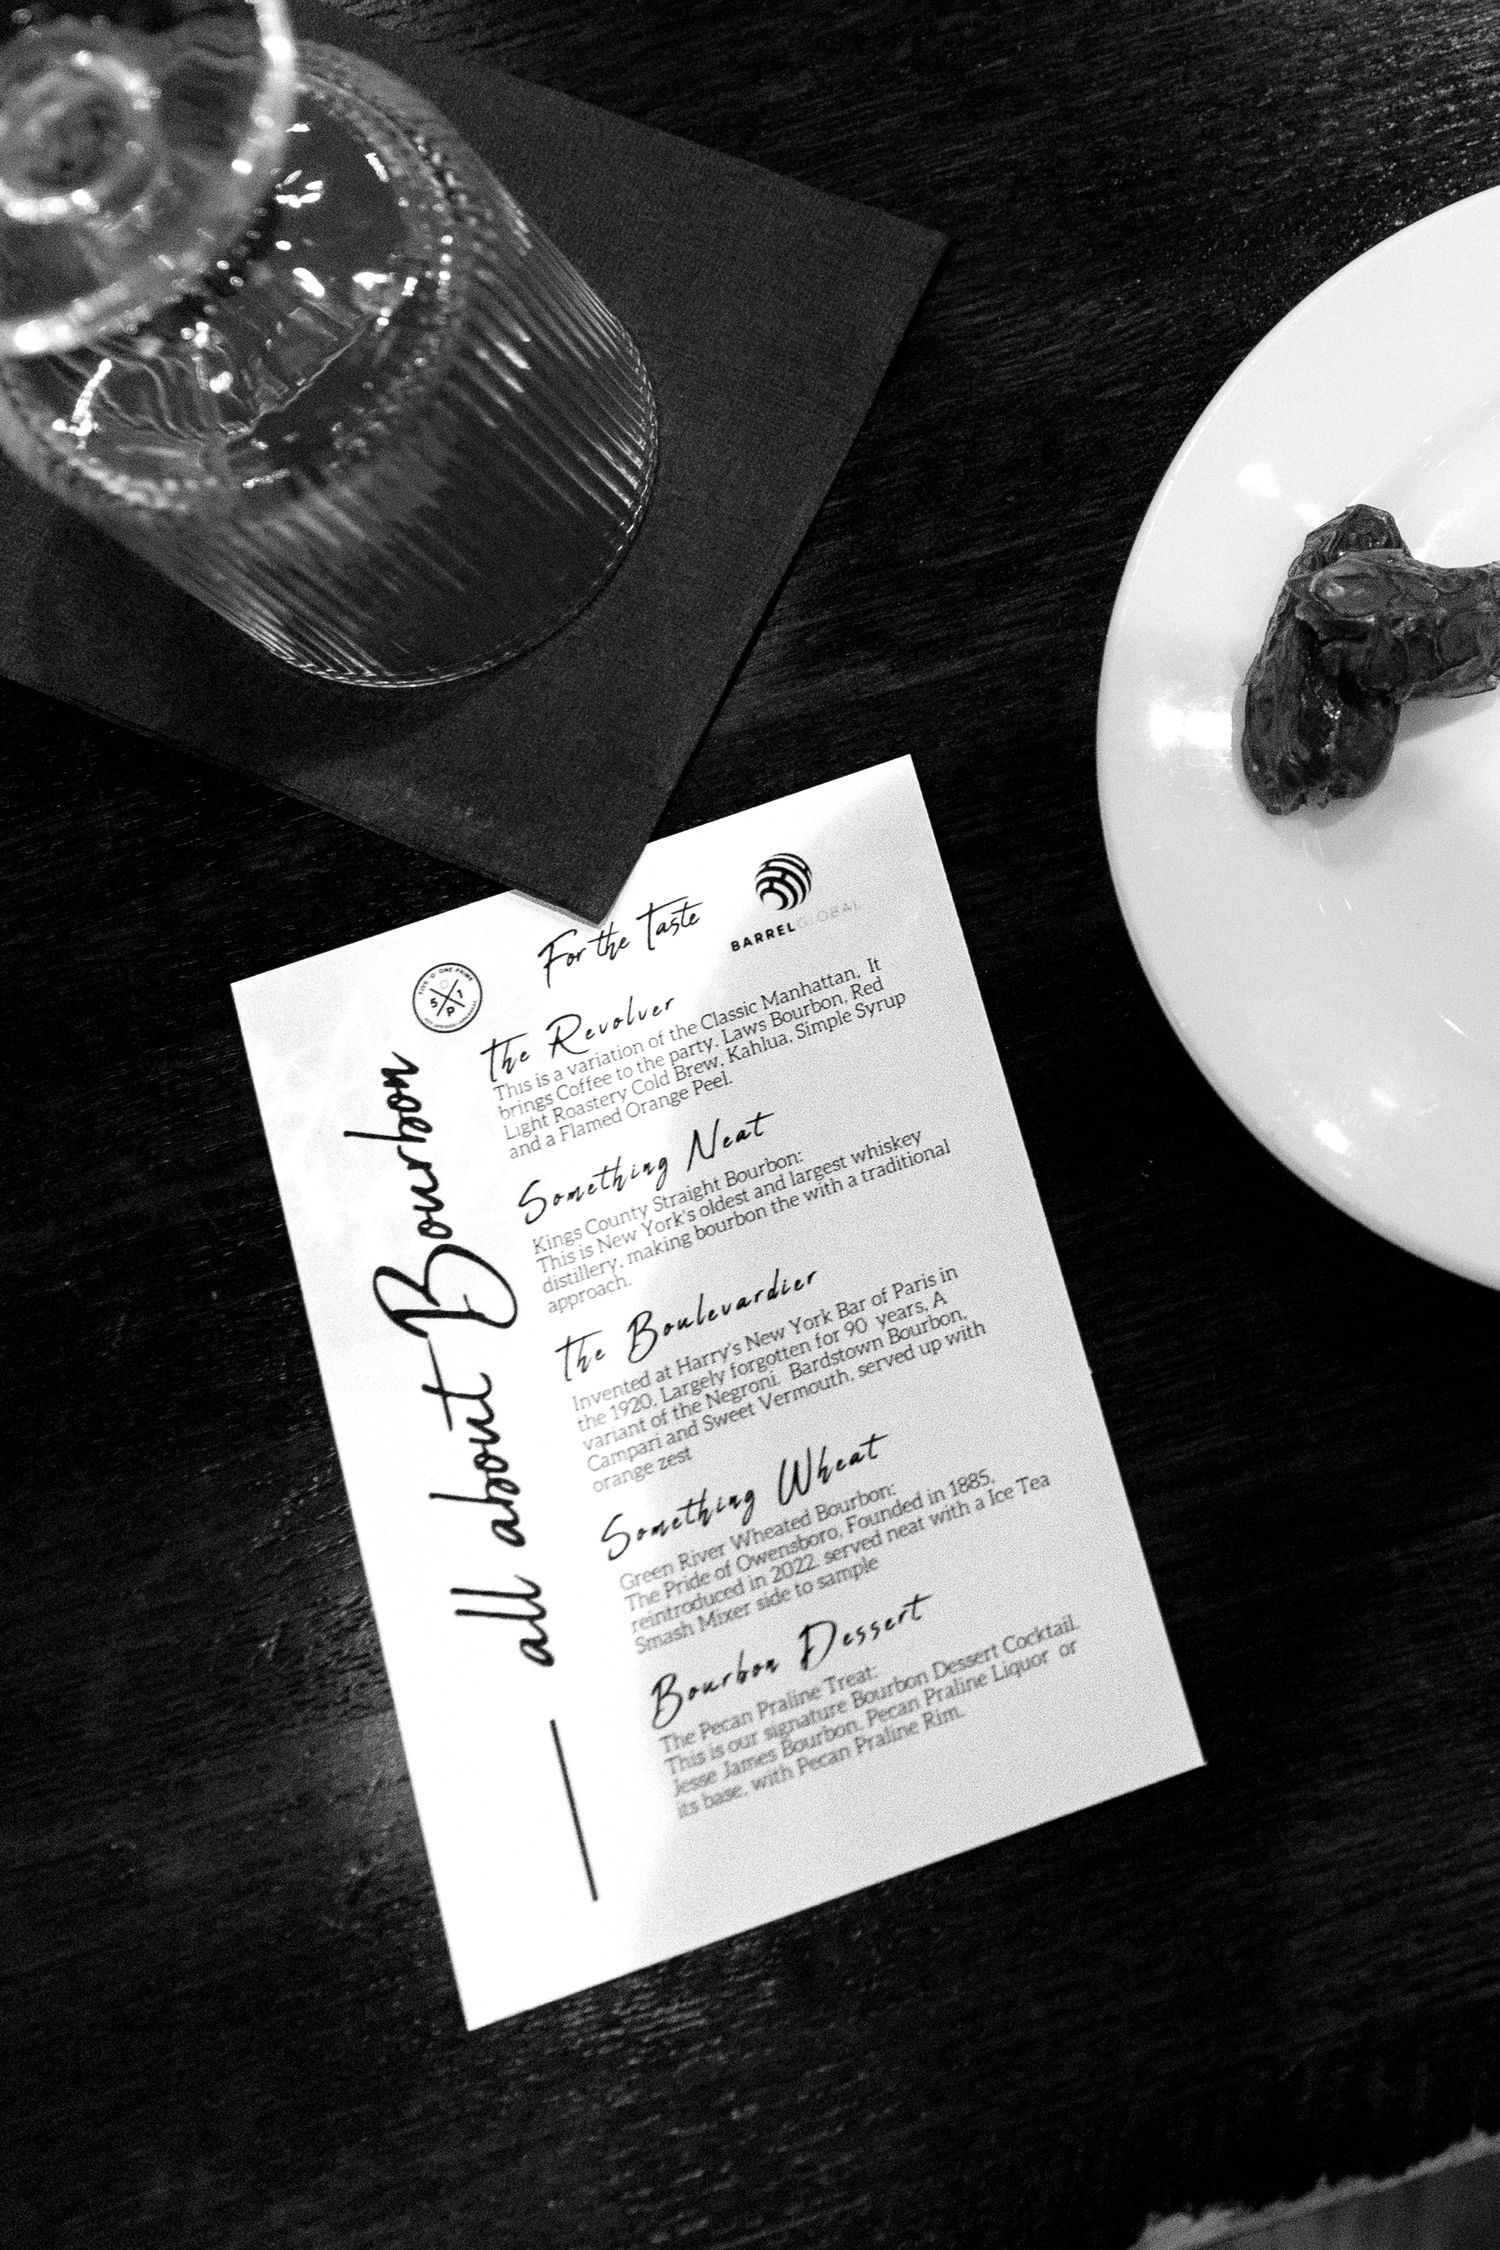 For the Taste
BARRELGLOBAL
FIVE O ONE PRIME
5 1
P
all about Bourbon
The Revolver
This is a variation of the Classic Manhattan, It
brings Coffee to the party. Laws Bourbon, Red
Light Roastery Cold Brew, Kahlua, Simple Syrup
and a Flamed Orange Peel.
Something Neat
Kings County Straight Bourbon:
This is New York's oldest and largest whiskey
distillery, making bourbon the with a traditional
approach.
The Boulevardier
Invented at Harry's New York Bar of Paris in
the 1920, Largely forgotten for 90 years, A
variant of the Negroni, Bardstown Bourbon,
Campari and Sweet Vermouth, served up with
orange zest
Something Wheat
Green River Wheated Bourbon:
The Pride of Owensboro, Founded in 1885,
reintroduced in 2022. served neat with a Ice Tea
Smash Mixer side to sample
Bourbon Dessert
The Pecan Praline Treat:
This is our signature Bourbon Dessert Cocktail.
Jesse James Bourbon, Pecan Praline Liquor or
its base, with Pecan Praline Rim.